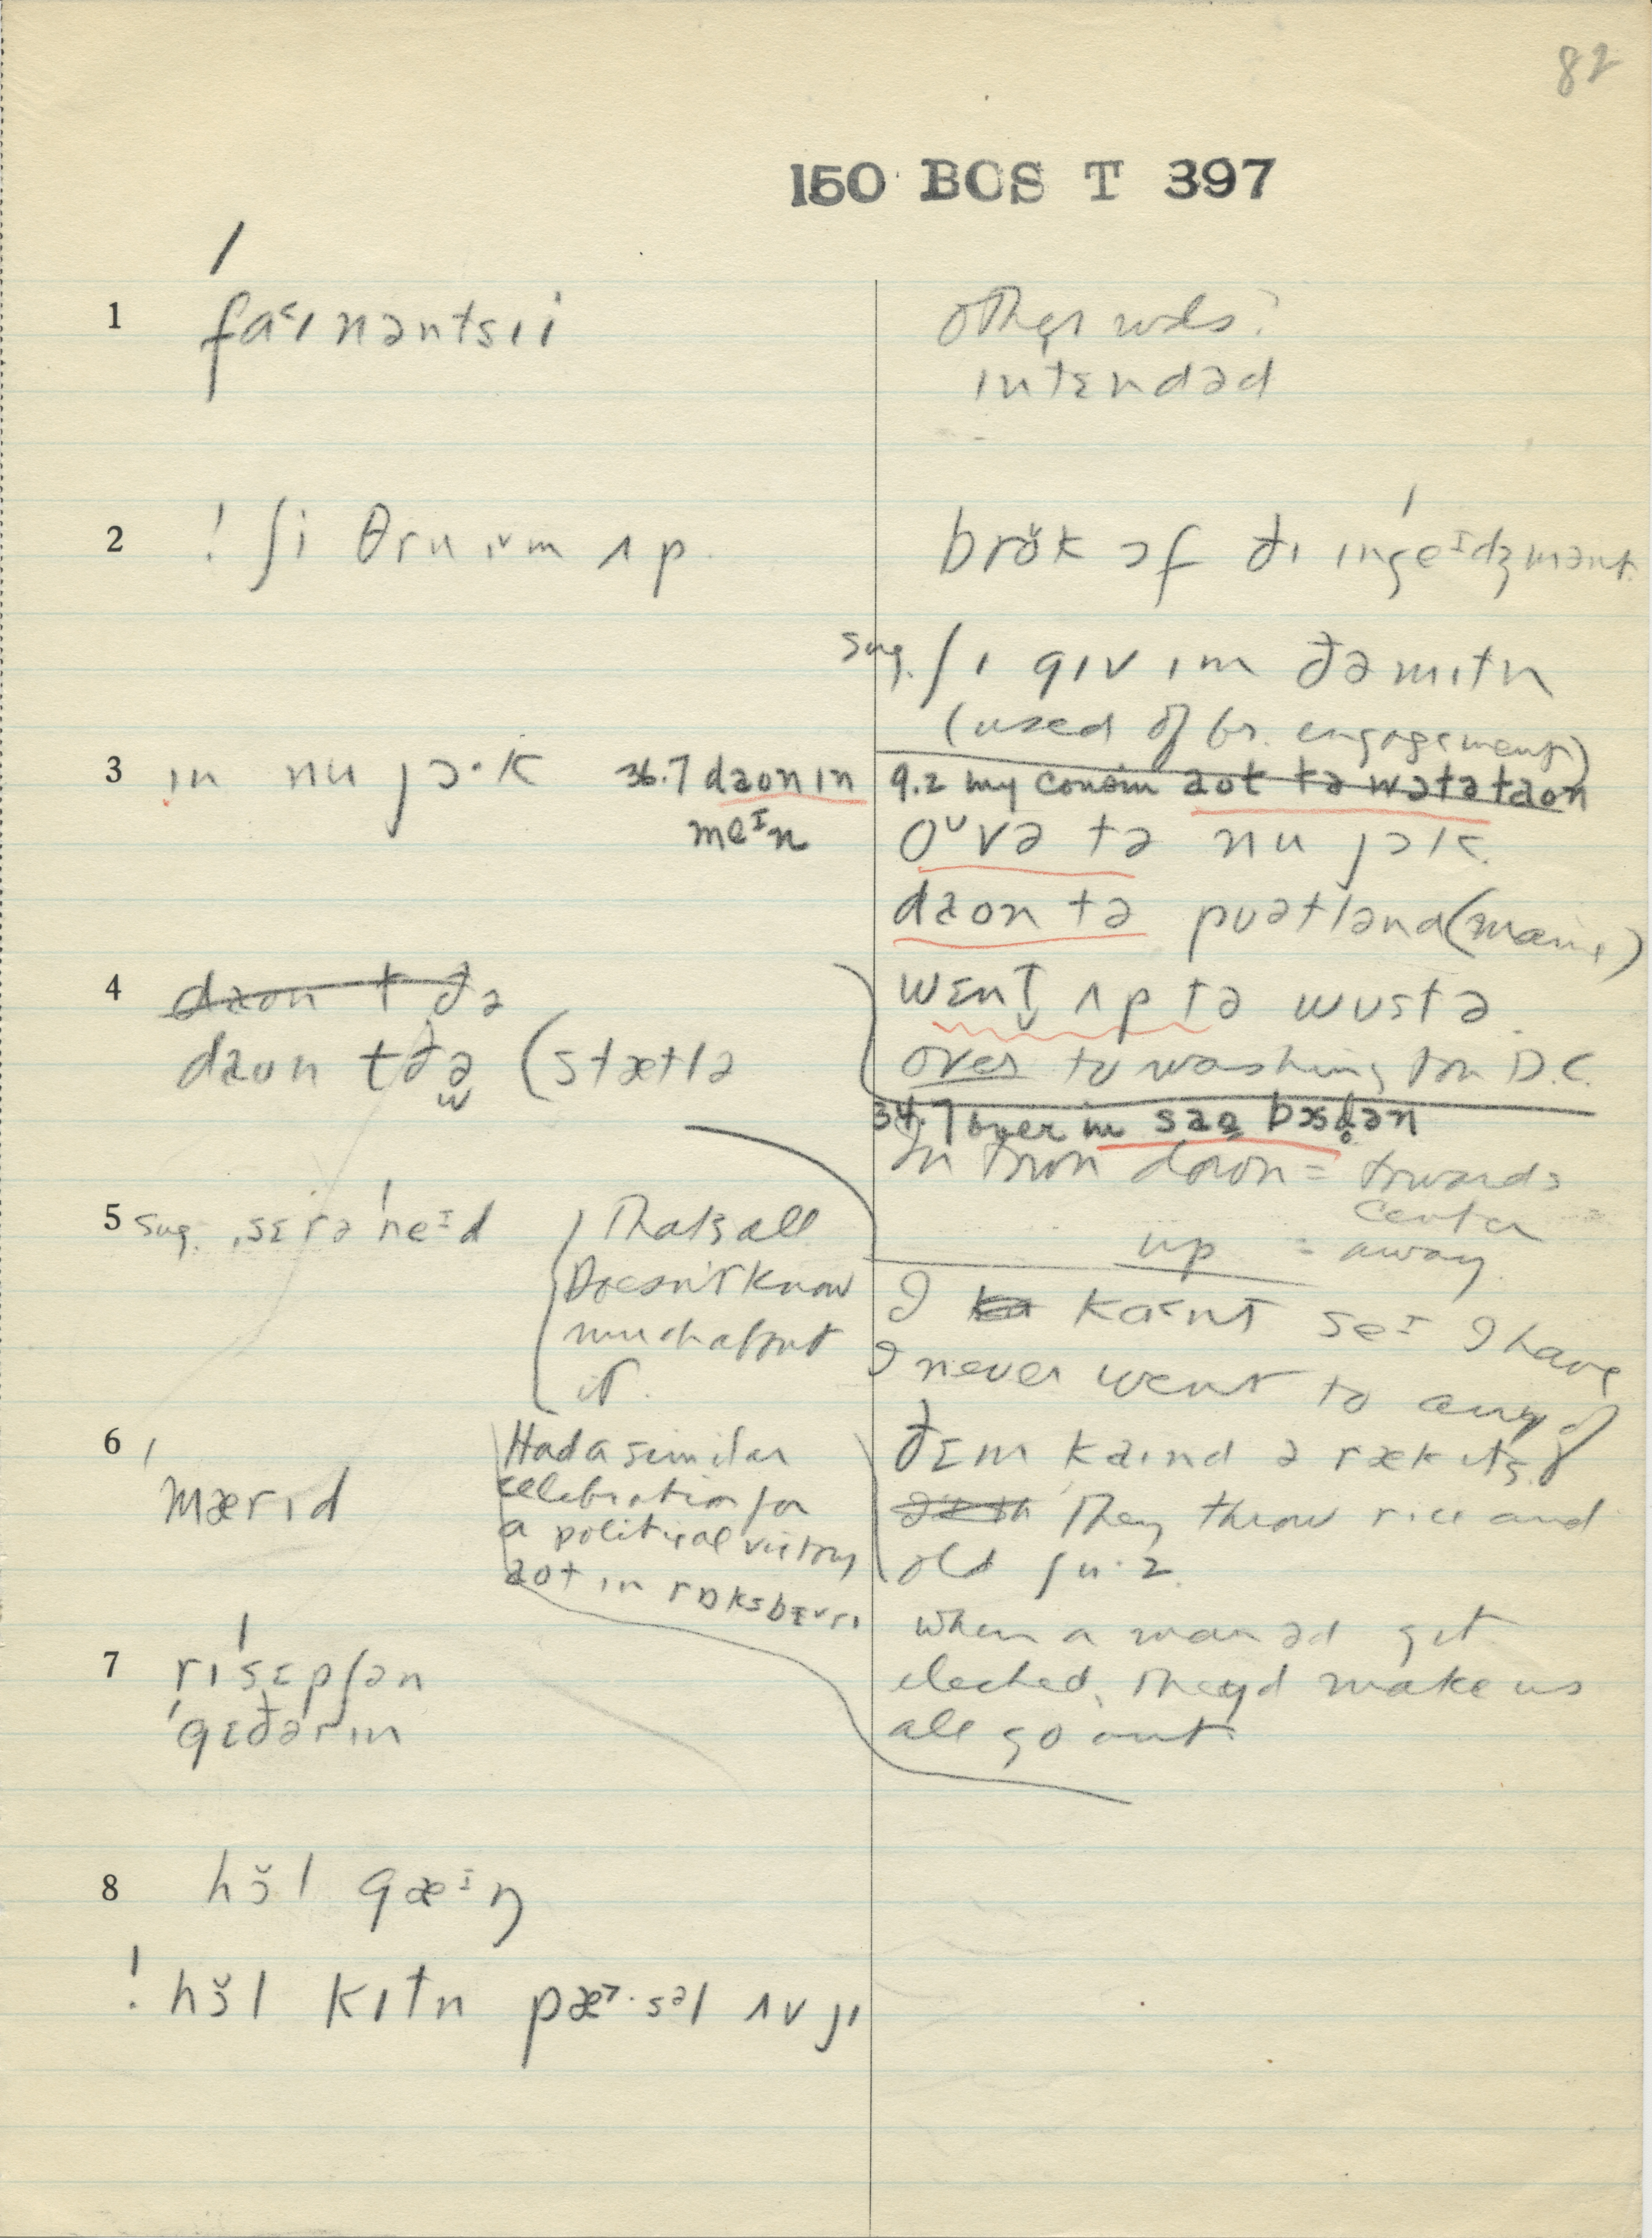 82
150 BOS T 397
1 faˑ˂ɪnəntsɪi
other wds?
ɪntɛndəd
2 ! ʃi θru ɪ̌m ʌp
brɵ̆k ɔf ðɪ ɪngeᴵdʒmənt
sug. ʃɪ gɪv ɪm ðə mɪtn
(used of br. engagement)
3 ɪn nu jɔ·k
36.7 daʊn ɪn
meᴵn
9.2 my cousin aʊt tə wɔtətaʊn
oᵁvə tə nu jɔk
daʊn tə pʊətlənd (maine)
4 daʊn t ðə
daʊn t ðə (stætlə
wɛnt ʌp tə wʊstə
over to washington D.C.
34.7 over in saʊ bɔsd̥ən
In town daʊn = towards
center
up = away
5 sug. ˌsɛrəˈneᴵd
That's all
Doesn't know
much about
it.
I kaˑ˂nt seᴵ I have
I never went to any of
ðɛm kaɪnd ə rækɪts
They throw rice and
old ʃu·z
6 ˈmærɪd
Had a similar
celebration for
a political victory
aʊt ɪn rɒksbɛ˅rɪ
when a man əd get
elected, they'd make us
all go out
7 rɪˈsɛpʃən
ˈgɛðərɪn
8 hɔ̆l gæᴵŋ
! hɔ̆l kɪtn pæ˃·səl ʌv jɪ